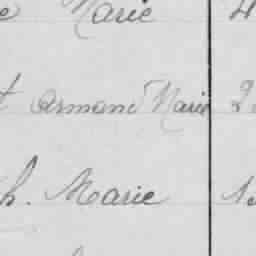 e Marie 4
t Armand Marie 2
h. Marie 13